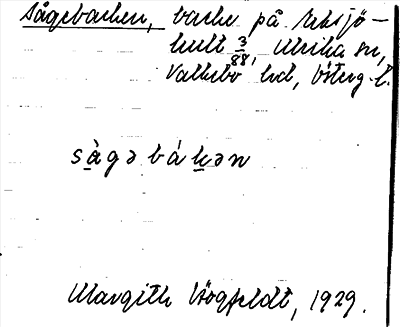 Sågebacken, backe på Reksjö-
hult 3/88, Ulrika sn,
Valkebo hd, Österg. l.
sàgəbákən
Margith Högfeldt, 1929.